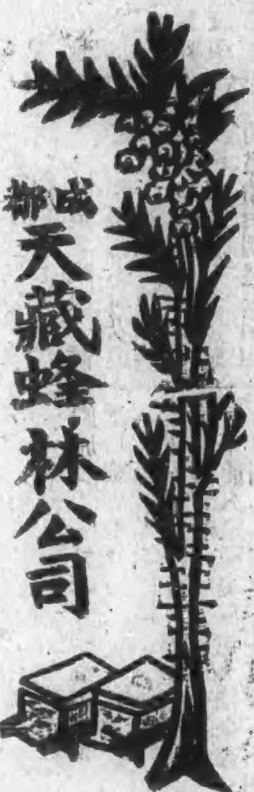 成都
天藏蜂林公司